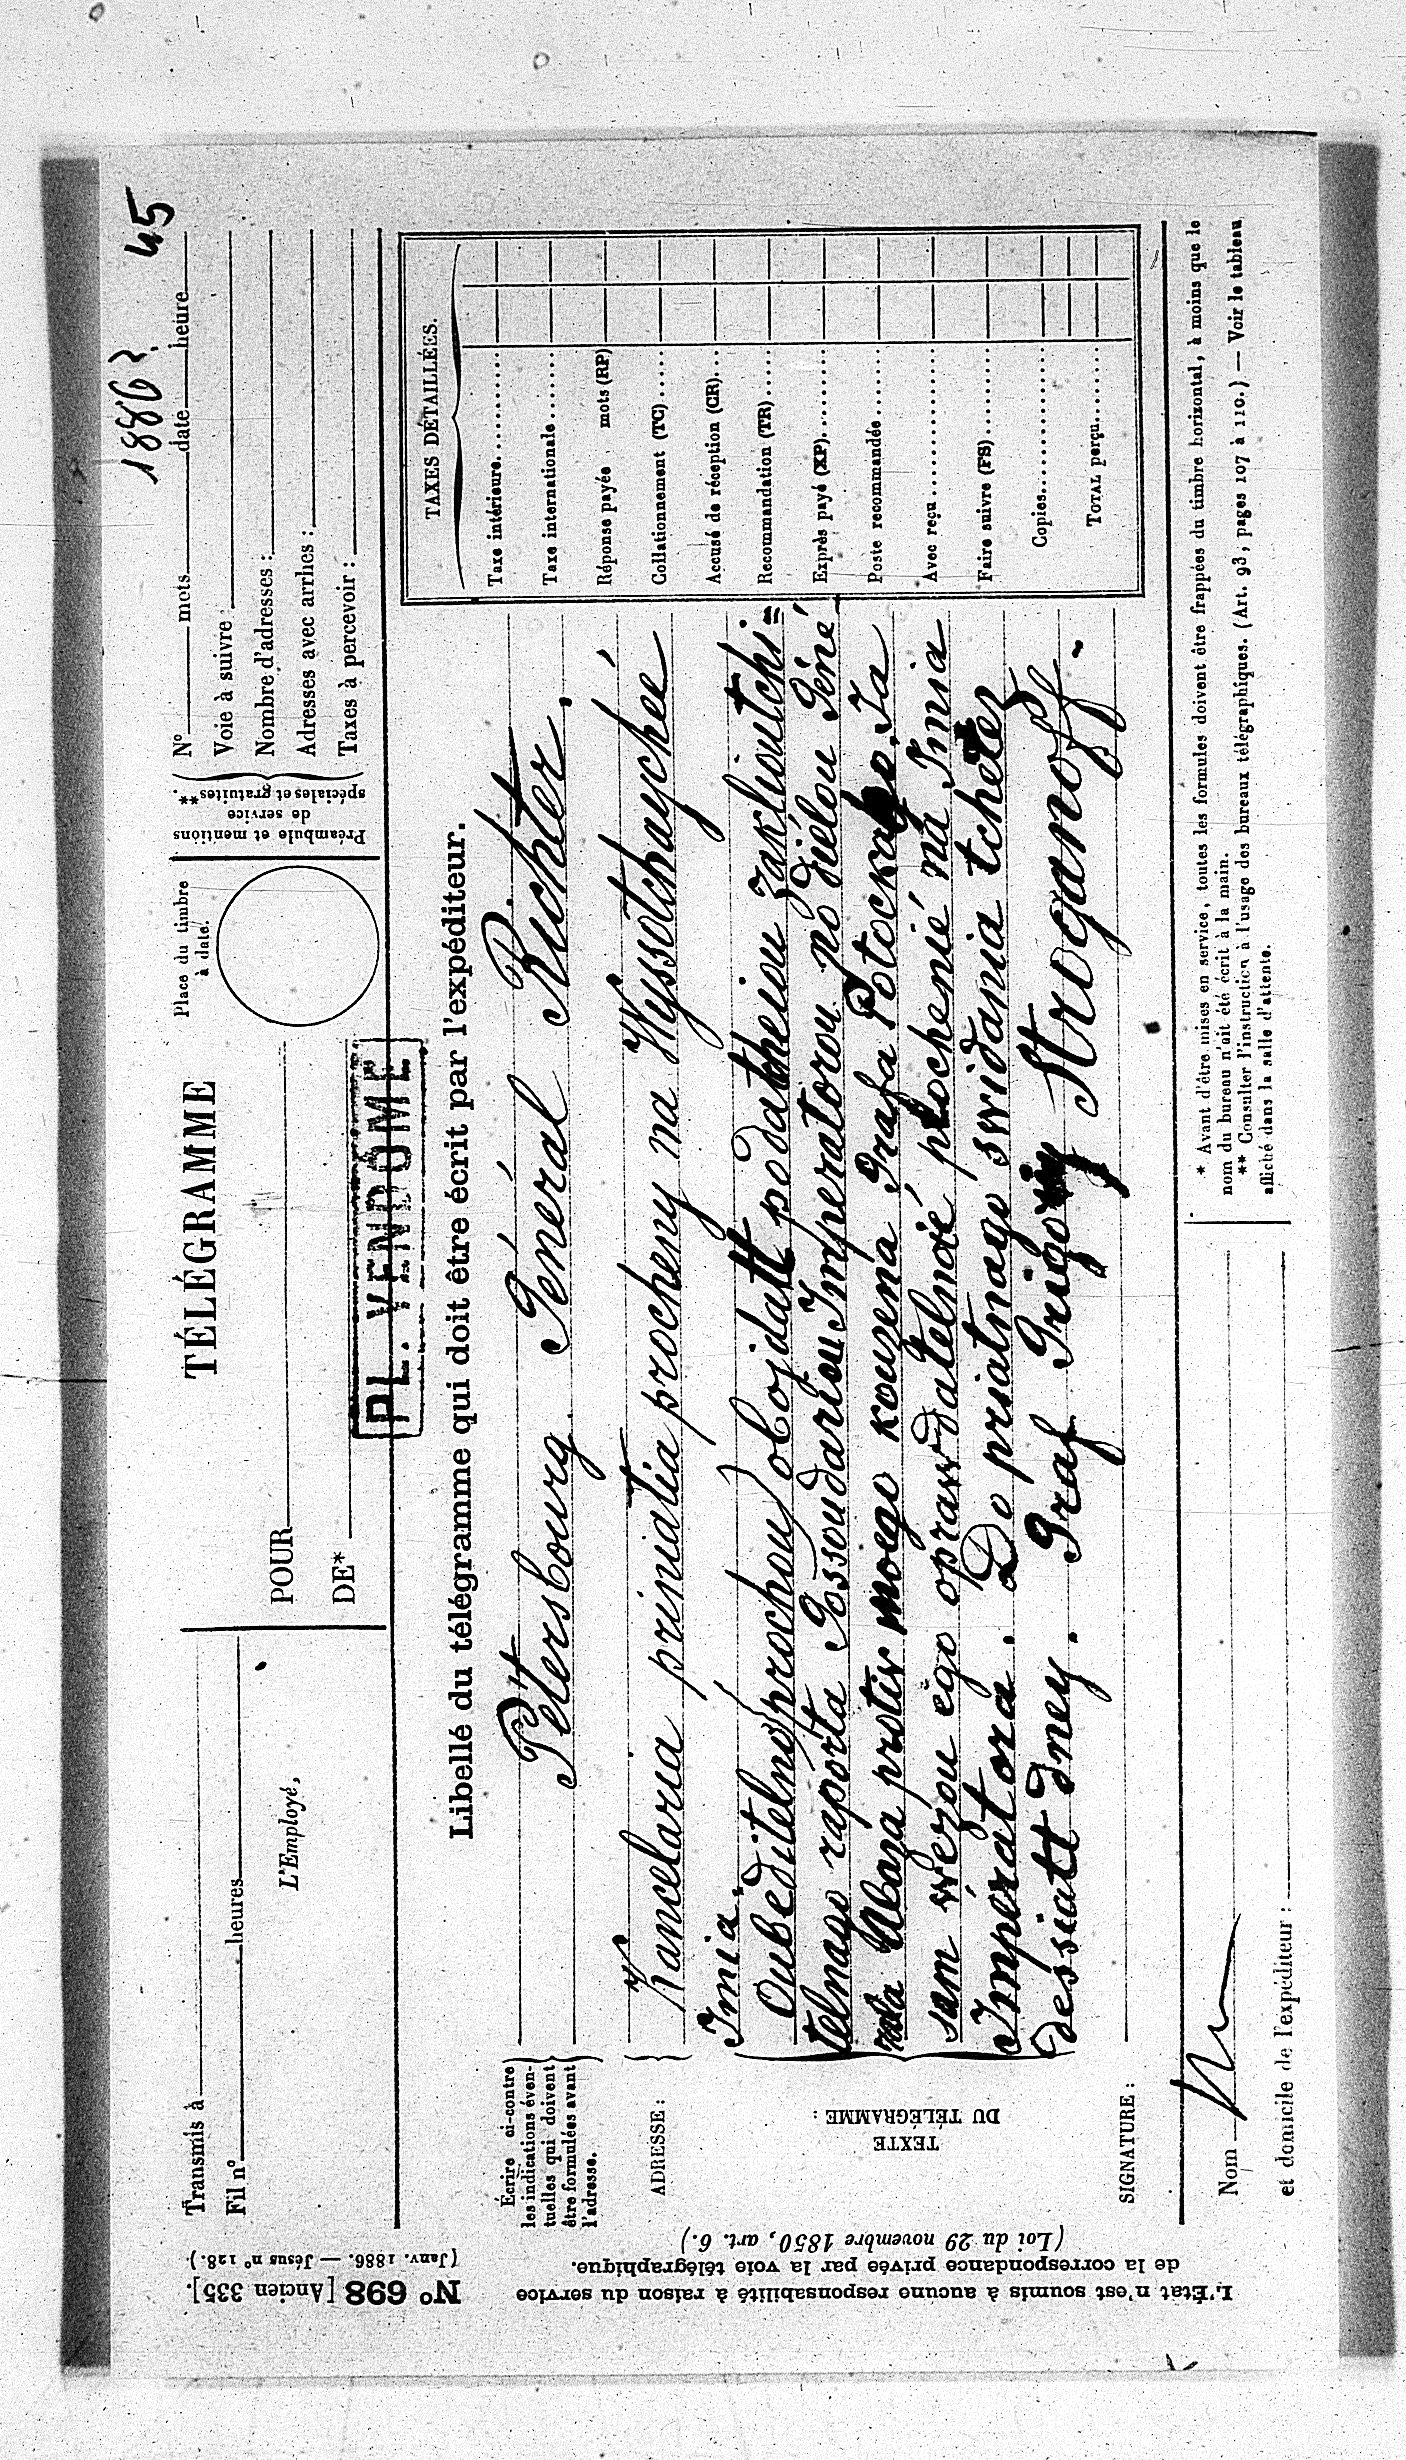 1886 г. 45
Transmis à
Fil n° heures
L'Employé,
TÉLÉGRAMME
POUR
DE*
PL. VENDÔME
Place du timbre
à date.
Préambule et mentions
de service
spéciales et gratuites**.
N° mots date heure
Voie à suivre :
Nombre d'adresses :
Adresses avec arrhes :
Taxes à percevoir :
Libellé du télégramme qui doit être écrit par l'expéditeur.
Écrire ci-contre
les indications éven-
tuelles qui doivent
être formulées avant
l'adresse.
Pétersbourg. Général Richter.
ADRESSE :
Kancelaria priniatia procheny na Wyssotchaychée
Imia.
TEXTE
DU TÉLÉGRAMME :
Oubeditelno prochou obojdatt podatcheiou zaklioutchi=
telnago raporta Gossoudariou Imperatorou po dielou Géné
rala protiv moego kouzena Grafa Potockago. Ia
sam wezou ego oprawdatelnoié prochenié na Imia
Imperatora. Do priatnago swidania tcherez
dessiatt dney. Graf Grigory Stroganoff.
SIGNATURE :
TAXES DÉTAILLÉES.
Taxe intérieure
Taxe internationale
Réponse payée mots (RP)
Collationnement (TC)
Accusé de réception (CR)
Recommandation (TR)
Exprès payé (XP)
Poste recommandée
Avec reçu
Faire suivre (FS)
Copies
TOTAL perçu
Nom
et domicile de l'expéditeur :
* Avant d'être mises en service, toutes les formules doivent être frappées du timbre horizontal, à moins que le
nom du bureau n'ait été écrit à la main.
** Consulter l'instruction à l'usage des bureaux télégraphiques. (Art. 93, pages 107 à 110.) — Voir le tableau
affiché dans la salle d'attente.
N° 698 [Ancien 335].
(Janv. 1886. — Jésus n° 128.)
L'État n'est soumis à aucune responsabilité à raison du service
de la correspondance privée par la voie télégraphique.
(Loi du 29 novembre 1850, art. 6.)